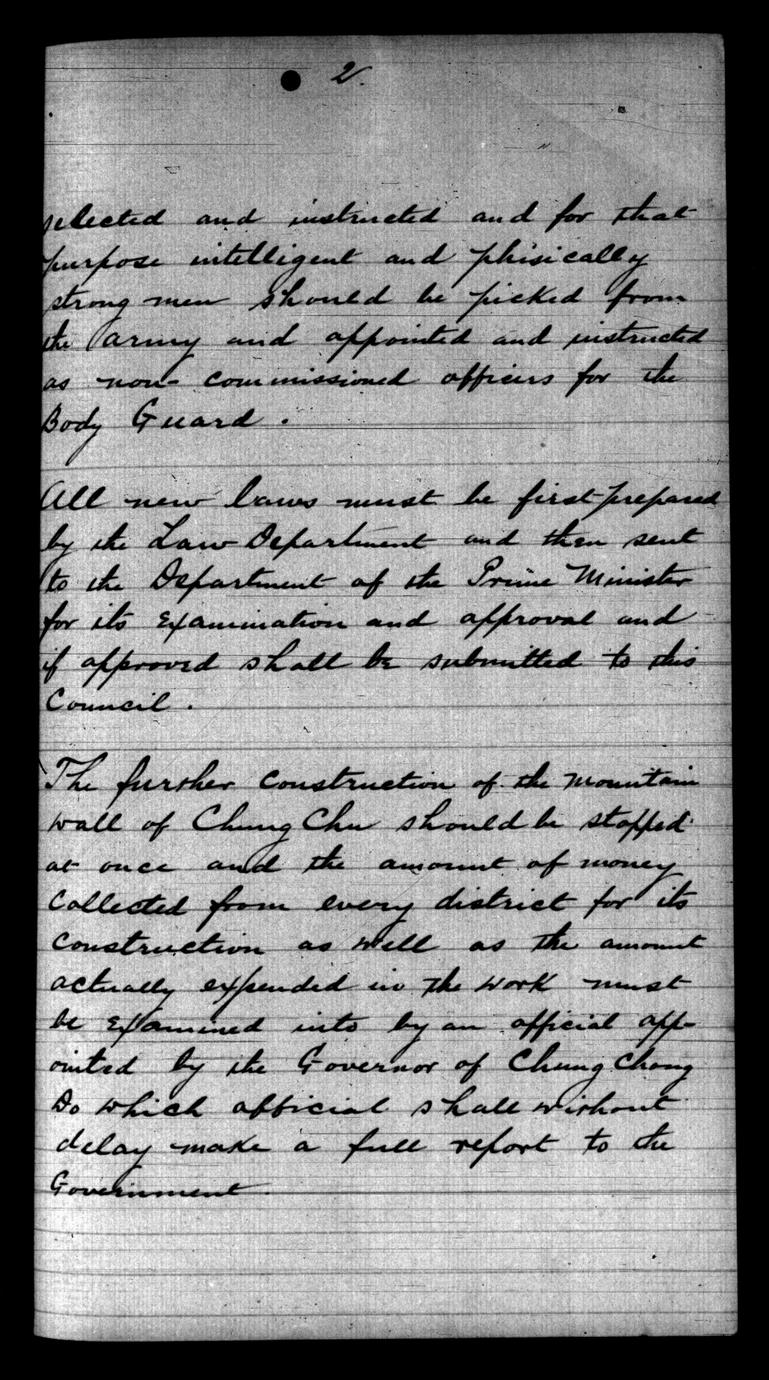 2.
selected and instructed and for that
purpose intelligent and phisically
strong men should be picked from
the army and appointed and instructed
as non-commissioned officers for the
Body Guard.
All new laws must be first prepared
by the Law Department and then sent
to the Department of the Prime Minister
for its examination and approval and
if approved shall be submitted to this
Council.
The further construction of the mountain
wall of Chung Chu should be stopped
at once and the amount of money
collected from every district for its
construction as well as the amount
actually expended in the work must
be examined into by an official app-
ointed by the Governor of Chung Chong
Do which official shall without
delay make a full report to the
Government.